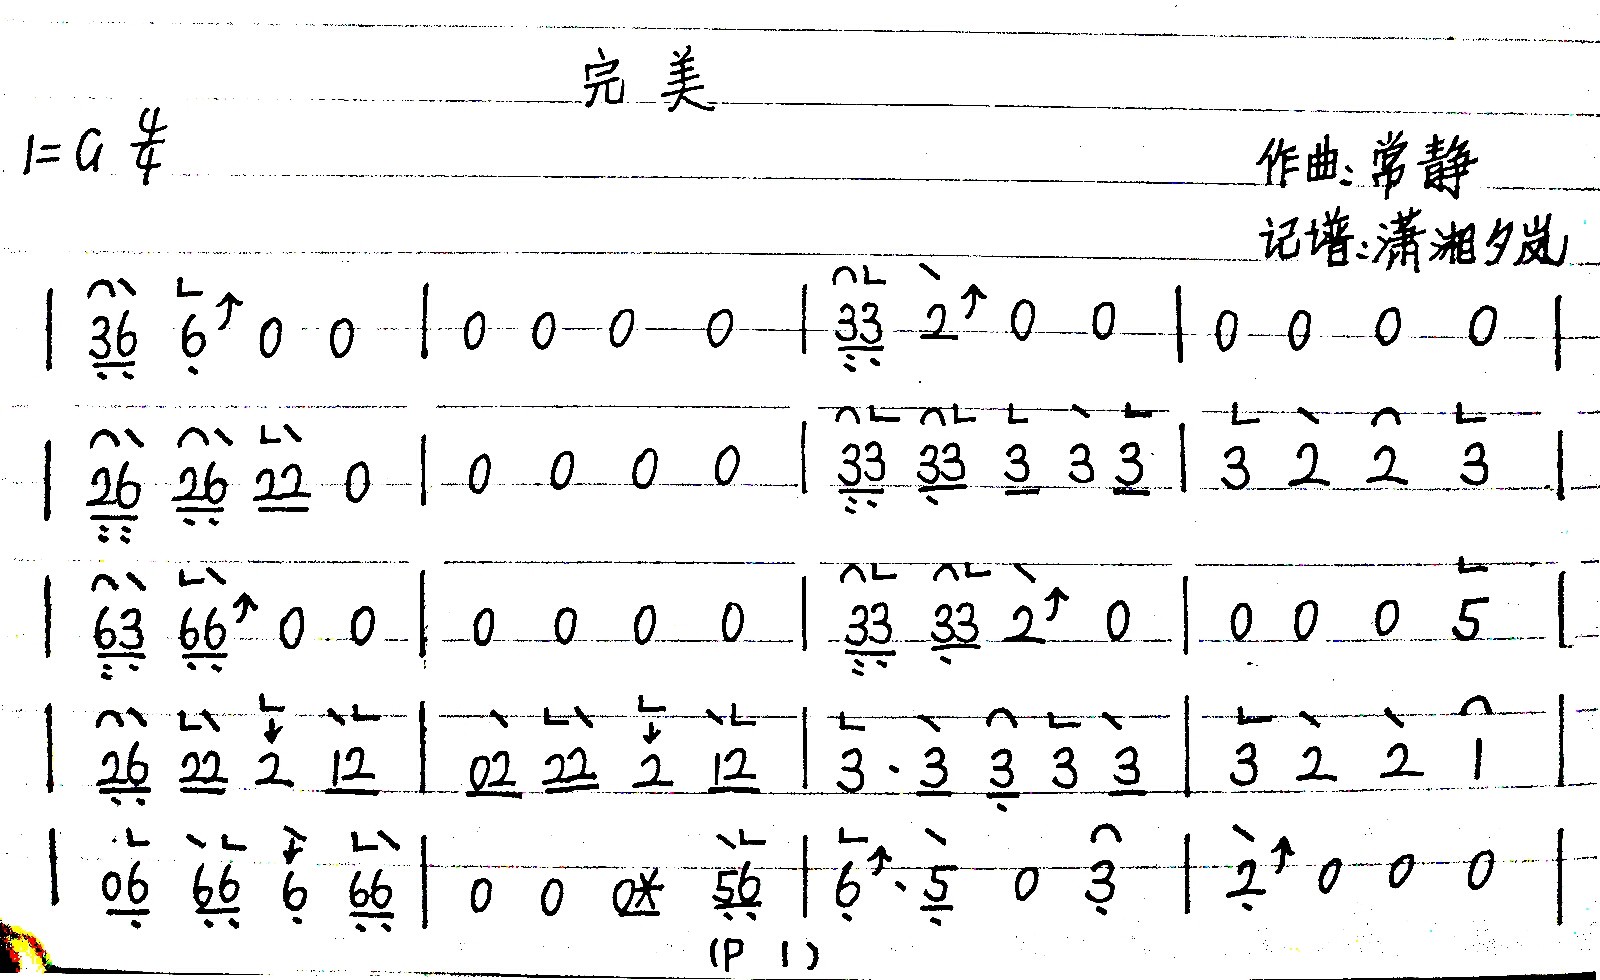 完美
1=G 4/4
作曲:常静
记谱:潇湘夕岚
| 36 6↑ 0 0 | 0 0 0 0 | 33 2↑ 0 0 | 0 0 0 0 |
| 26 26 22 0 | 0 0 0 0 | 33 33 3 3 3 | 3 2 2 3 |
| 63 66↑ 0 0 | 0 0 0 0 | 33 33 2↑ 0 | 0 0 0 5 |
| 26 22 2 12 | 02 22 2 12 | 3 · 3 3 3 3 | 3 2 2 1 |
| 06 66 6 66 | 0 0 0* 56 | 6↑· 5 0 3 | 2↑ 0 0 0 |
(P 1)